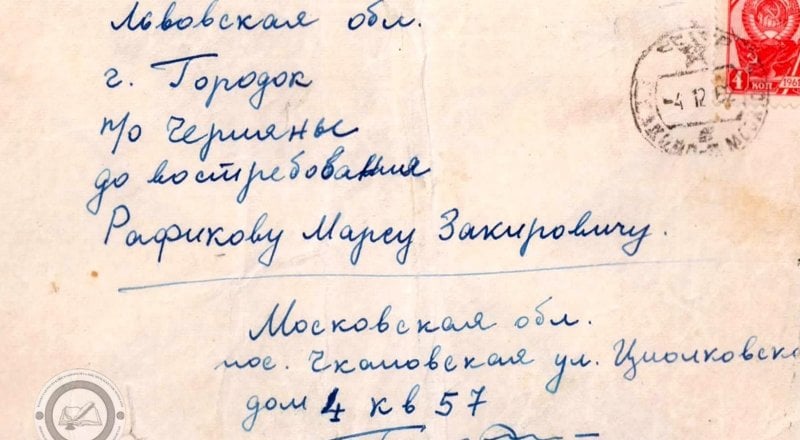 Львовская обл.
г. Городок
п/о Черляны
до востребования
Рафикову Марсу Закировичу.
4 коп 1961
-4 12
Московская обл.
пос. Чкаловская ул. Циолковска
дом 4 кв 57